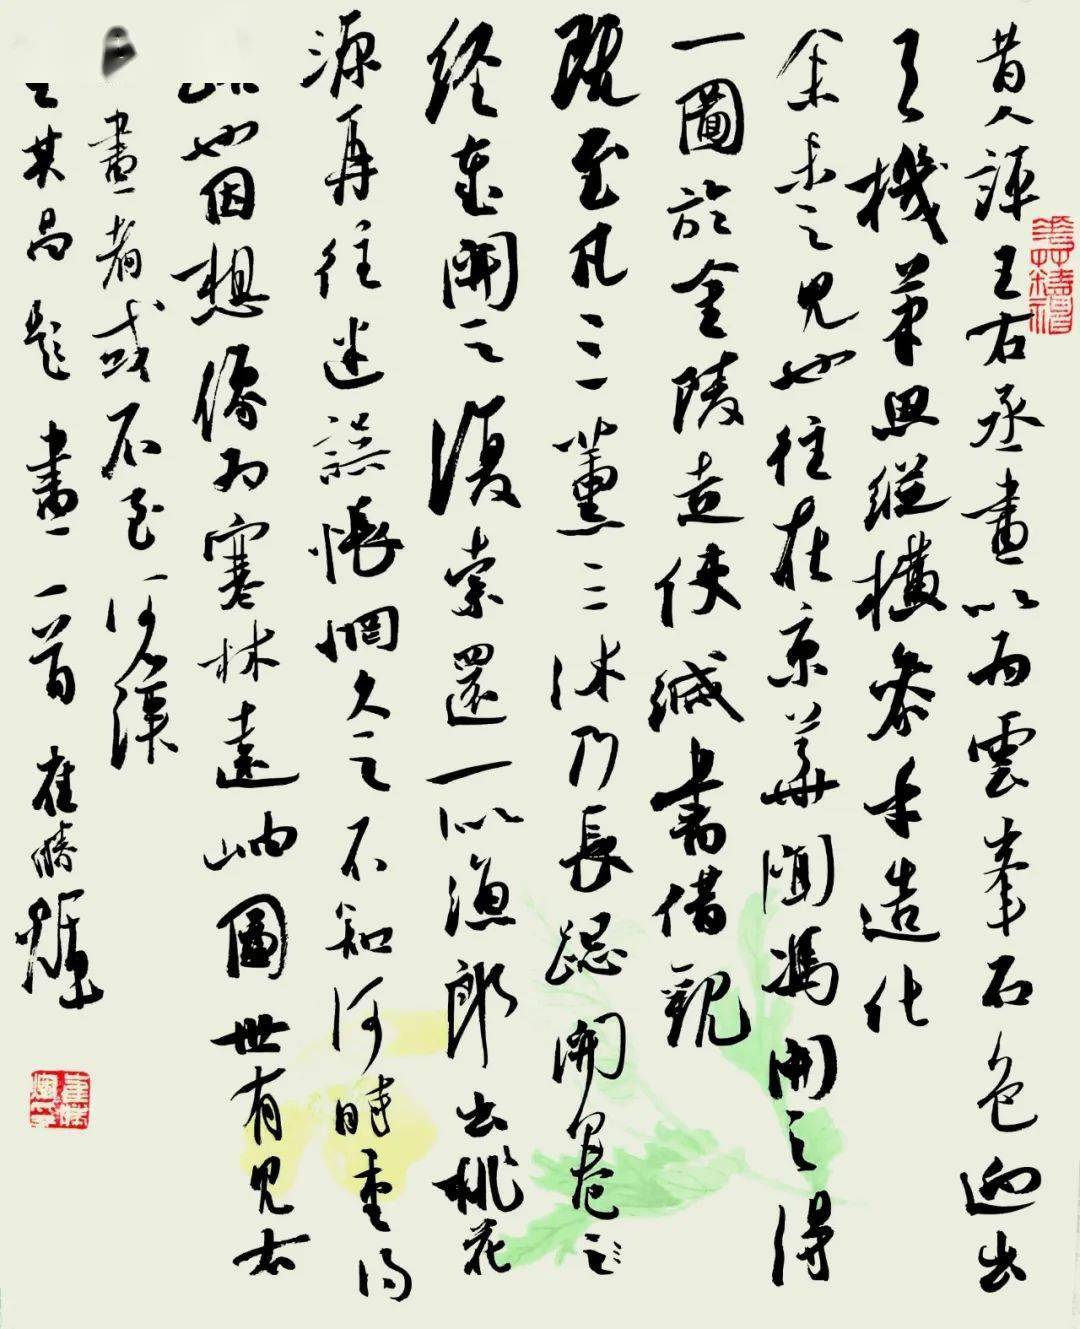 昔人評王右丞畫以為雲峯石色迥出
天機筆思縱橫參乎造化
余未之見也往在京華聞馮開之得
一圖於金陵走使緘書借觀
既至凡三薰三沐乃長跽開卷
經歲開之復索還一似漁郎出桃花
源再往迷誤悵惘久之不知何時重得
也因想像為寒林遠岫圖世有見右
畫者或不至河漢
其昌題畫一首 崔